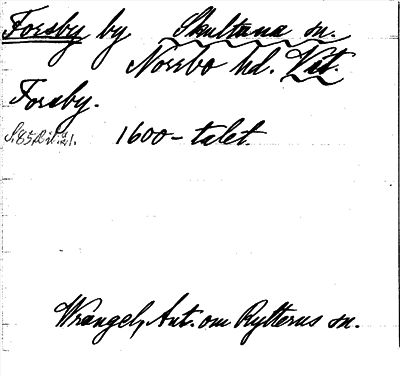 Forsby by Skultuna sn.
Norrbo hd. Vst.
Forsby.
1600-talet.
Wrangel, Ant. om Rytterns sn.